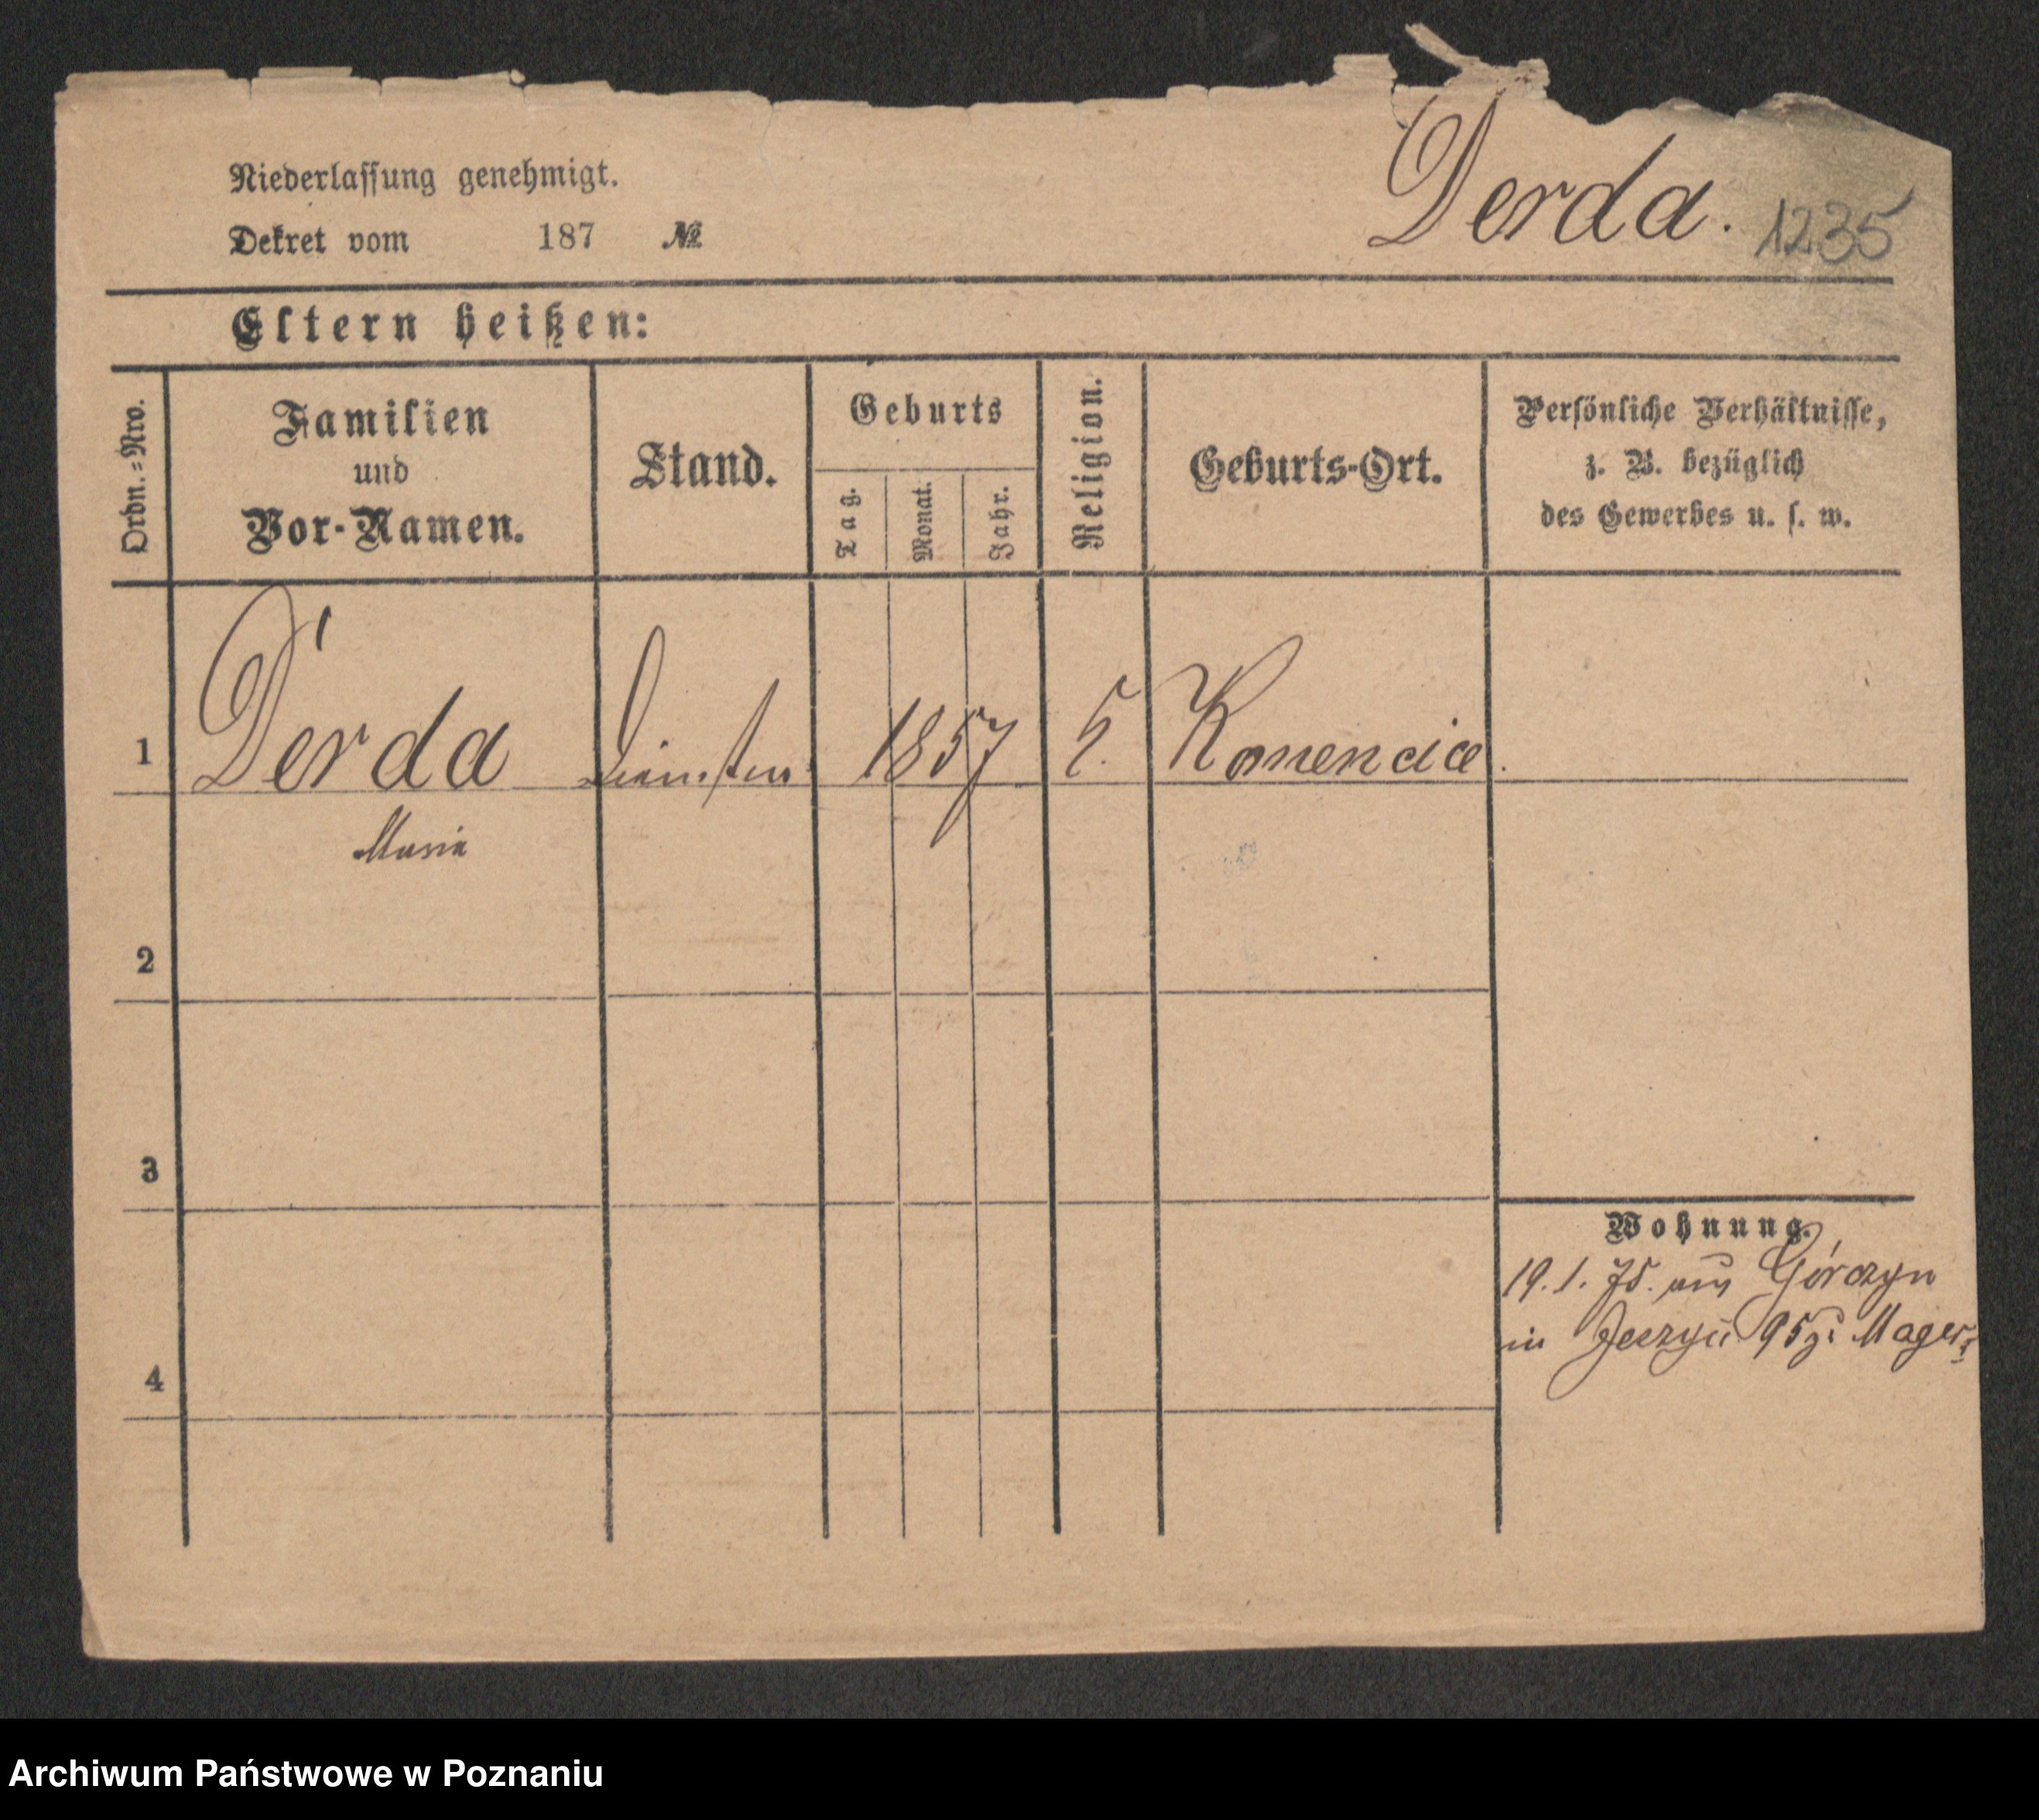 Niederlassung genehmigt.
Dekret vom 187 №
Derda. 1235
Eltern heißen:
Ordn.=Nro.
Familien
und
Vor-Namen.
Stand.
Geburts
Tag.
Monat.
Jahr.
Religion.
Geburts-Ort.
Persönliche Verhältnisse,
z. B. bezüglich
des Gewerbes u. s. w.
1 Derda 1857 Konencice.
Maria
2
3
Wohnung.
19. 1. 75. aus Górczyn
in 95
4
Archiwum Państwowe w Poznaniu